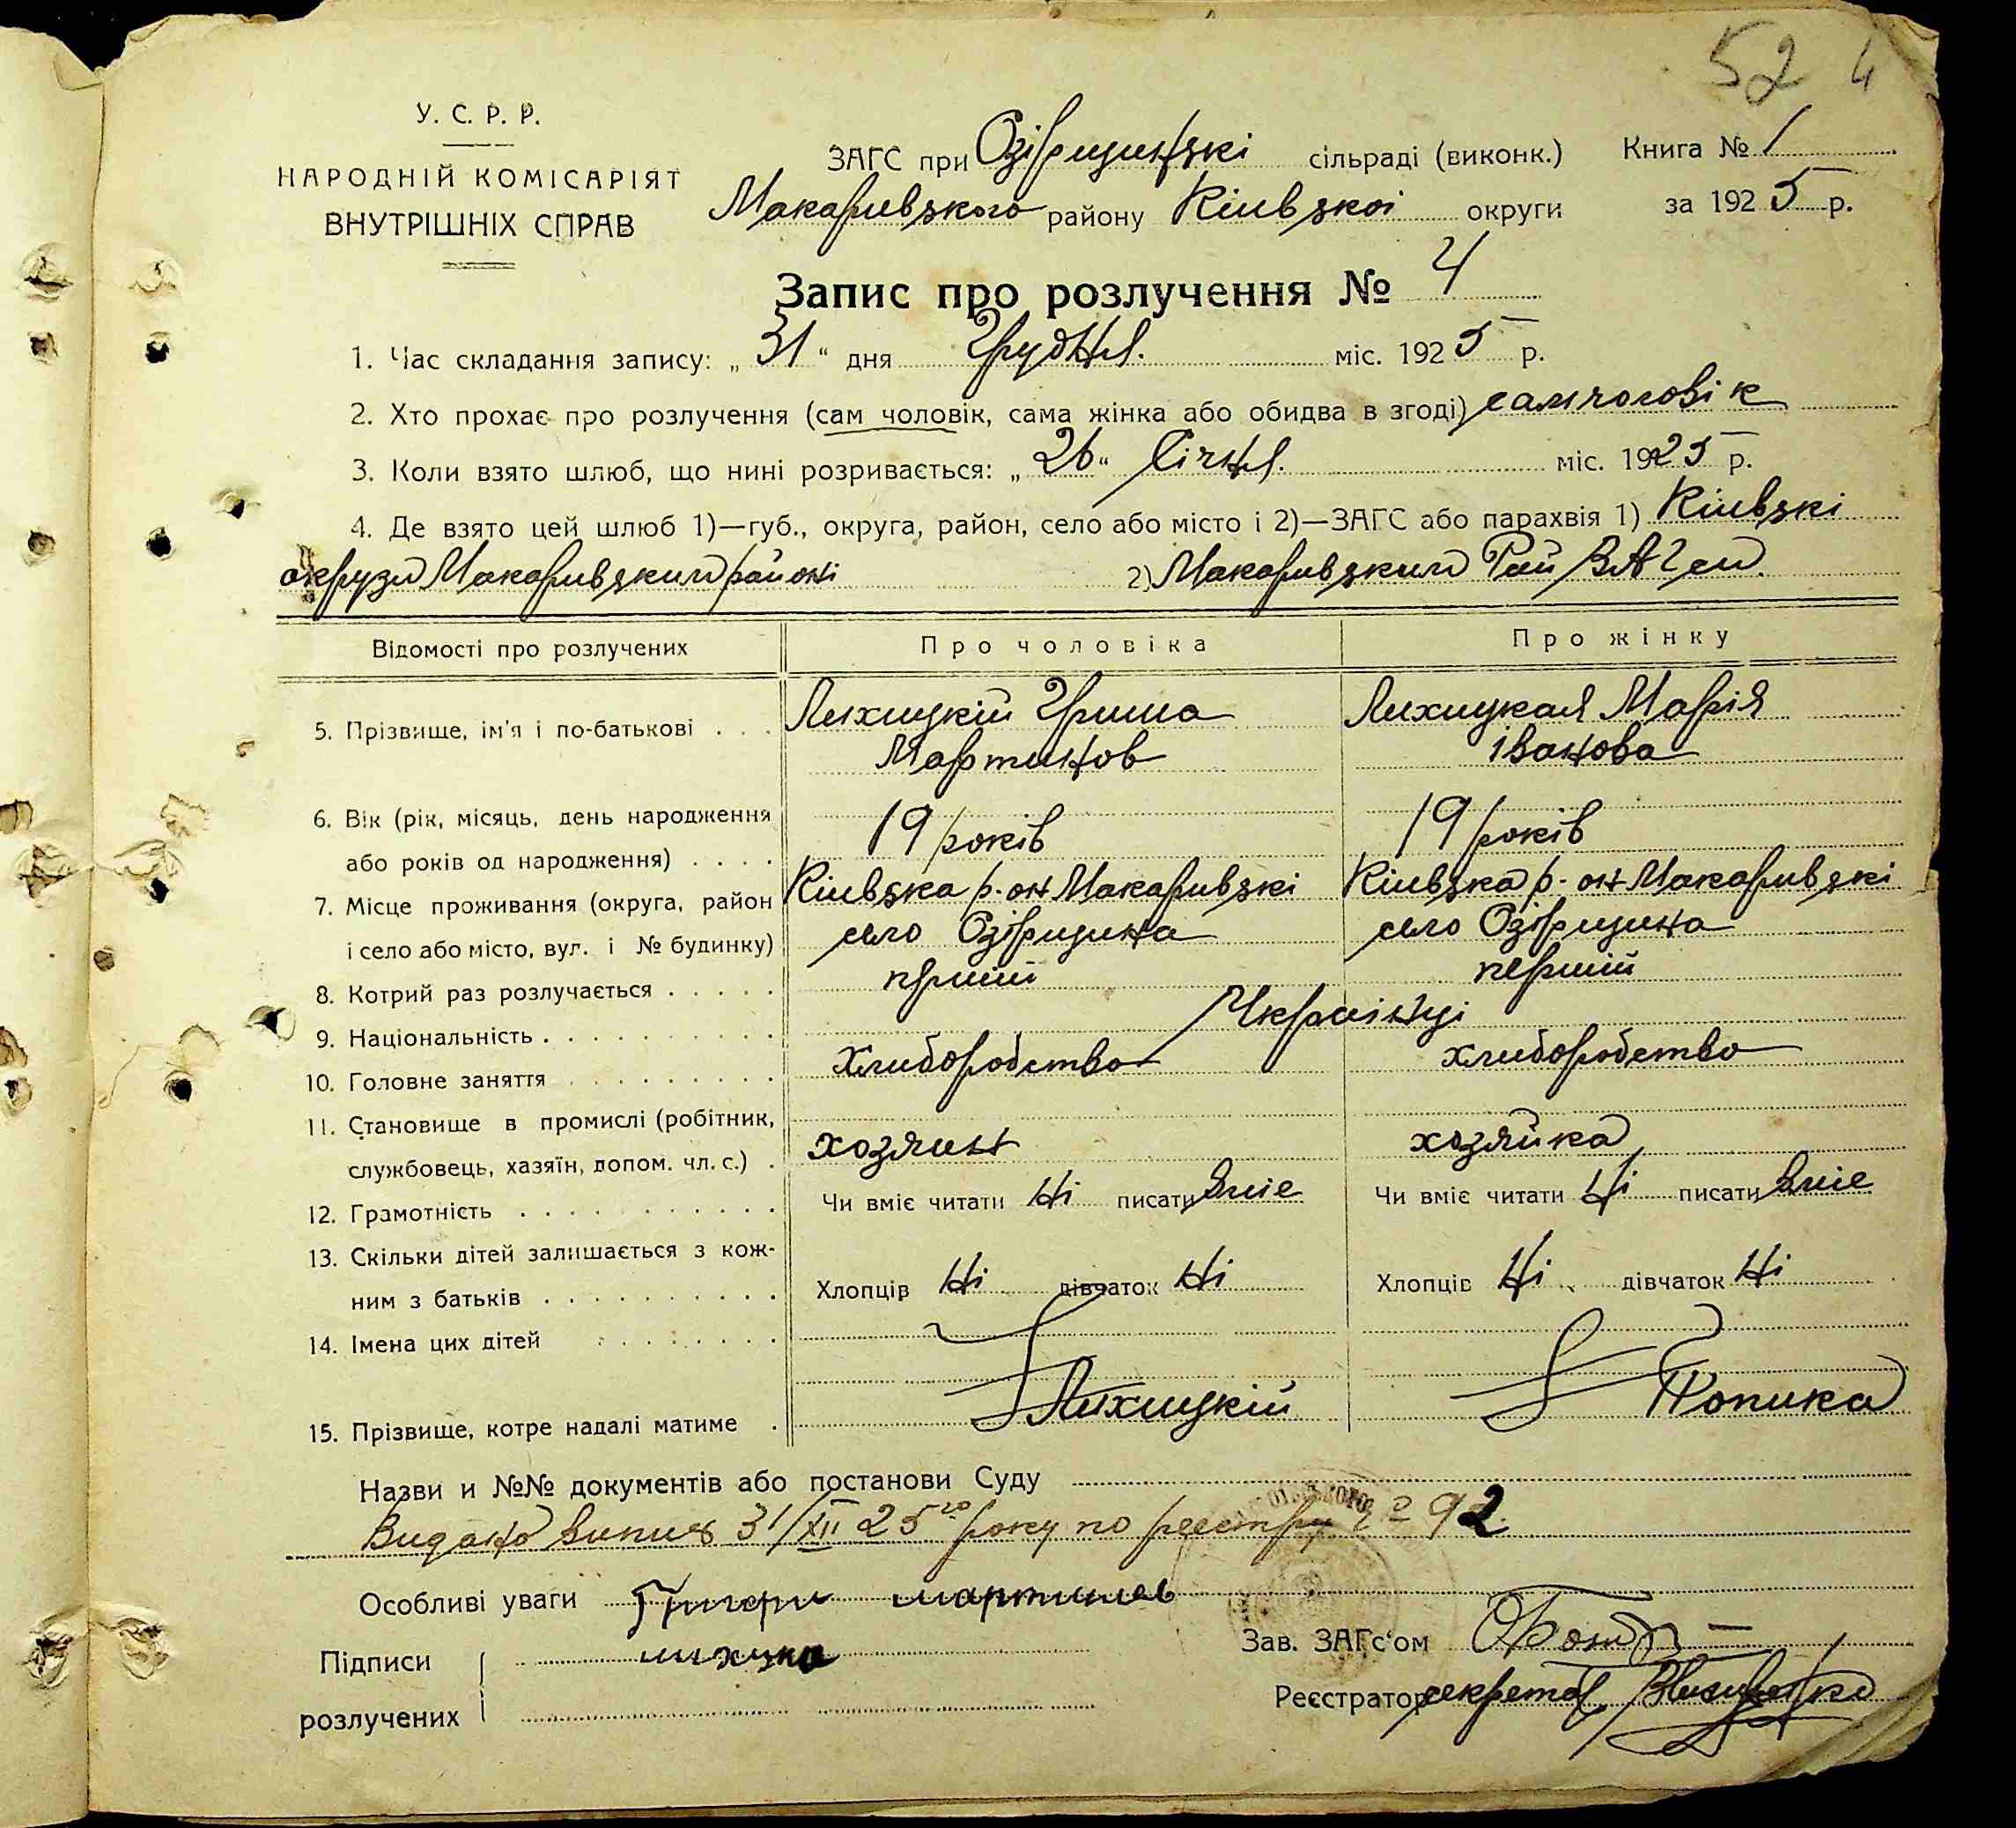 52 4
У. С. Р. Р.
НАРОДНІЙ КОМІСАРІЯТ
ВНУТРІШНІХ СПРАВ
ЗАГС при Озірщинські сільраді (виконк.) Книга № 1
Макаривского району Кіивскоі округи за 1925 р.
Запис про розлучення № 4
1. Час складання запису: „31“ дня Грудня. міс. 1925 р.
2. Хто прохає про розлучення (сам чоловік, сама жінка або обидва в згоді) сам чоловік
3. Коли взято шлюб, що нині розривається: „26“ Січня. міс. 1925 р.
4. Де взято цей шлюб 1)—губ., округа, район, село або місто і 2)—ЗАГС або парахвія 1) Кіивскі
округи Макаривским районі 2) Макаривским Рай ЗАГсм.
Відомості про розлучених Про чоловіка Про жінку
5. Прізвище, ім'я і по-батькові . . . Лихицкій Гриша Мартинов Лихицкая Марія іванова
6. Вік (рік, місяць, день народження
або років од народження) . . . . 19 років 19 років
7. Місце проживання (округа, район
і село або місто, вул. і № будинку) Кіивска р-он Макаривскі село Озірщина Кіивска р-он Макаривскі село Озірщина
8. Котрий раз розлучається . . . . . перший перший
9. Національність . . . . . . . . . . Украінці
10. Головне заняття . . . . . . . . . хлиборобство хлиборобство
11. Становище в промислі (робітник,
службовець, хазяїн, допом. чл. с.) . хозяин хозяйка
12. Грамотність . . . . . . . . . . . Чи вміє читати Ні писати вміє Чи вміє читати Ні писати вміє
13. Скільки дітей залишається з кож-
ним з батьків . . . . . . . . . . Хлопців Ні дівчаток Ні Хлопців Ні дівчаток Ні
14. Імена цих дітей . . . . . . . .
15. Прізвище, котре надалі матиме . Лихицкій Копика
Назви и №№ документів або постанови Суду
Видано випис 31/XII 25го року по реестру № 92
Особливі уваги Григори мартинов
Підписи лихцки Зав. ЗАГс'ом
розлучених Реєстратор секретар